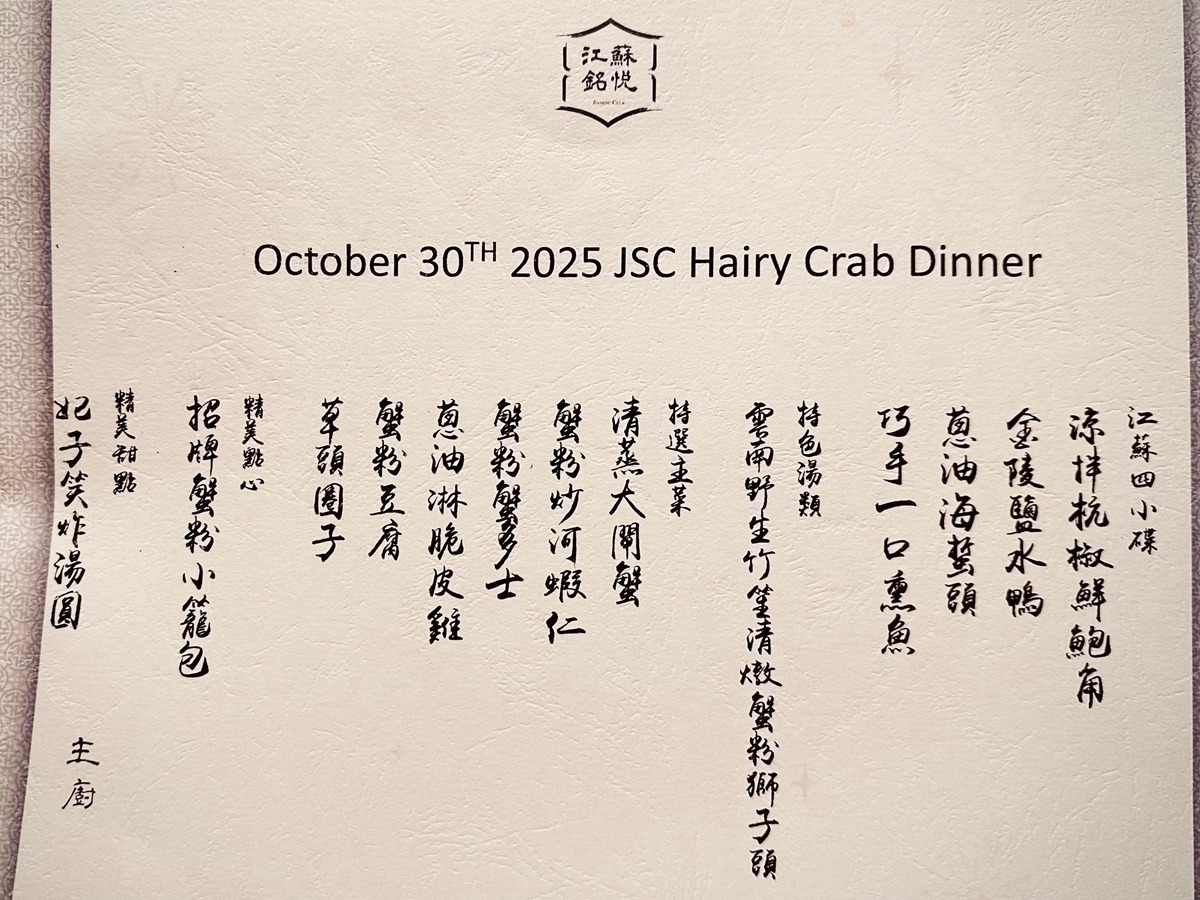 江蘇
銘悅
Jiangsu Club
October 30TH 2025 JSC Hairy Crab Dinner
江蘇四小碟
涼拌杭椒鮮鮑角
金陵鹽水鴨
蔥油海蜇頭
巧手一口熏魚
特色湯類
雲南野生竹笙清燉蟹粉獅子頭
特選主菜
清蒸大閘蟹
蟹粉炒河蝦仁
蟹粉蟹多士
蔥油淋脆皮雞
蟹粉豆腐
草頭圈子
精美點心
招牌蟹粉小籠包
精美甜點
妃子笑炸湯圓
主廚